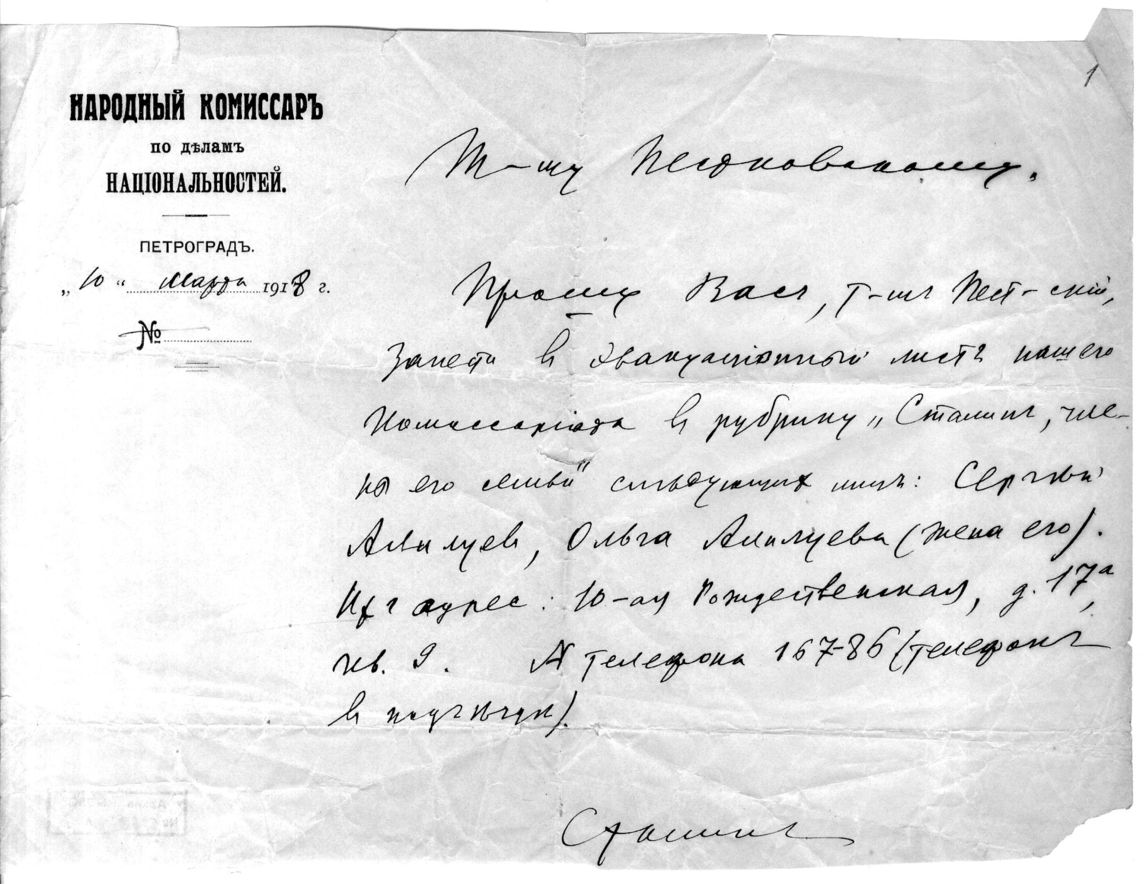 1
НАРОДНЫЙ КОМИССАРЪ
по дѣламъ
НАЦІОНАЛЬНОСТЕЙ.
ПЕТРОГРАДЪ.
„10“ марта 1918 г.
№
Т-щу Пестковскому.
Прошу Вас, т-щъ Пест-скій,
занести в эвакуаціонный листъ нашего
Комиссаріата в рубрику „Сталинъ, чле-
ны его семьи“ слѣдующих лицъ: Сергѣй
Алилуев, Ольга Алилуева (жена его).
Их адрес: 10-ая Рождественская, д. 17а,
кв. 9. № телефона 167-86 (телефонъ
в
Сталинъ